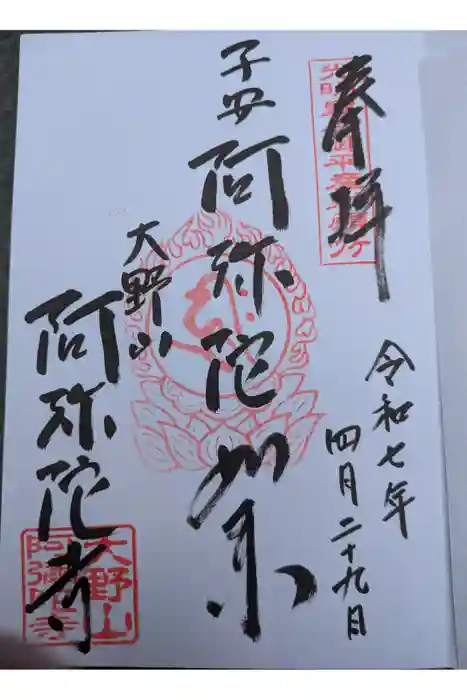 奉拝
令和七年
四月二十九日
子安 阿弥陀如来
大野山
阿弥陀寺
大野山
阿彌陀寺